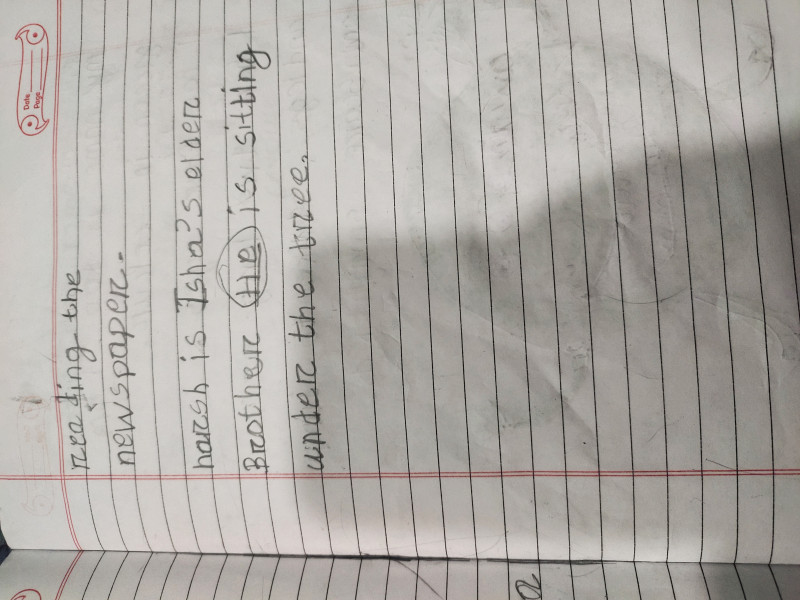 Date
Page
reading the
newspaper.
harsh is Isha's elder
Brother He is sitting
under the tree.